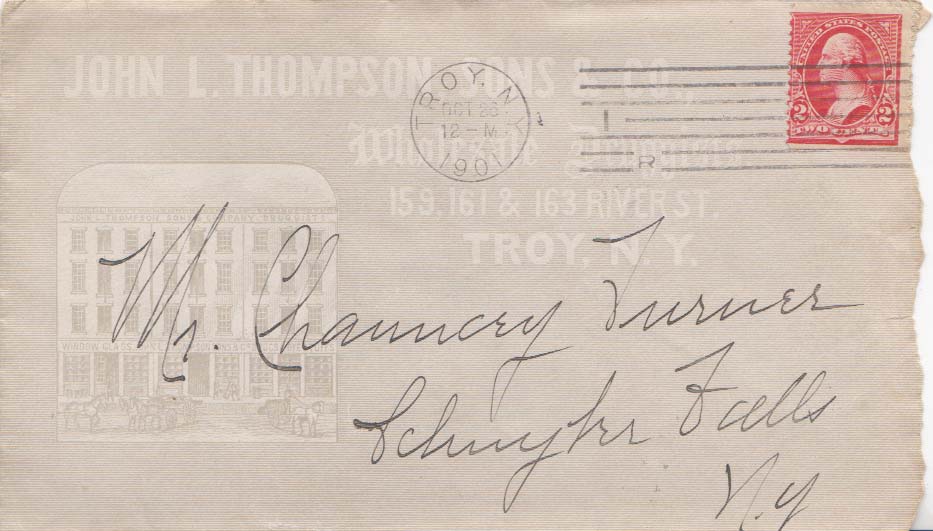 JOHN L. THOMPSON, SONS & CO.,
Wholesale Druggists
159, 161 & 163 RIVER ST.
TROY, N.Y.
TROY, N.Y.
OCT 26
12 - M
1901
1
R
UNITED STATES POSTAGE
2 2
TWO CENTS
JOHN L. THOMPSON, SONS & COMPANY, DRUGGISTS.
WINDOW GLASS
Mr. Chauncey Turner
Schuyler Falls
N.Y